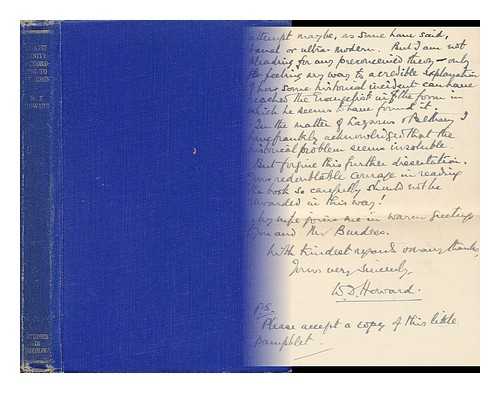 ACCORD-
ING TO
HOWARD
STUDIES
IN
THEOLOGY
attempt maybe, as some have said,
banal or ultra-modern. But I am not
pleading for any preconceived theory – only
feeling my way to a credible explanation
of how some historical incident can have
reached the Evangelist in the form in
which he seems to have found it.
In the matter of Lazarus & Bethany I
frankly acknowledged that the
historical problem seems insoluble.
But forgive this further dissertation.
redoubtable courage in reading
book so carefully should not be
rewarded in this way!
My wife joins me in warm greetings
you and Mrs
With kindest regards & many thanks,
Yours very sincerely,
Howard.
P.S.
Please accept a copy of this little
pamphlet.